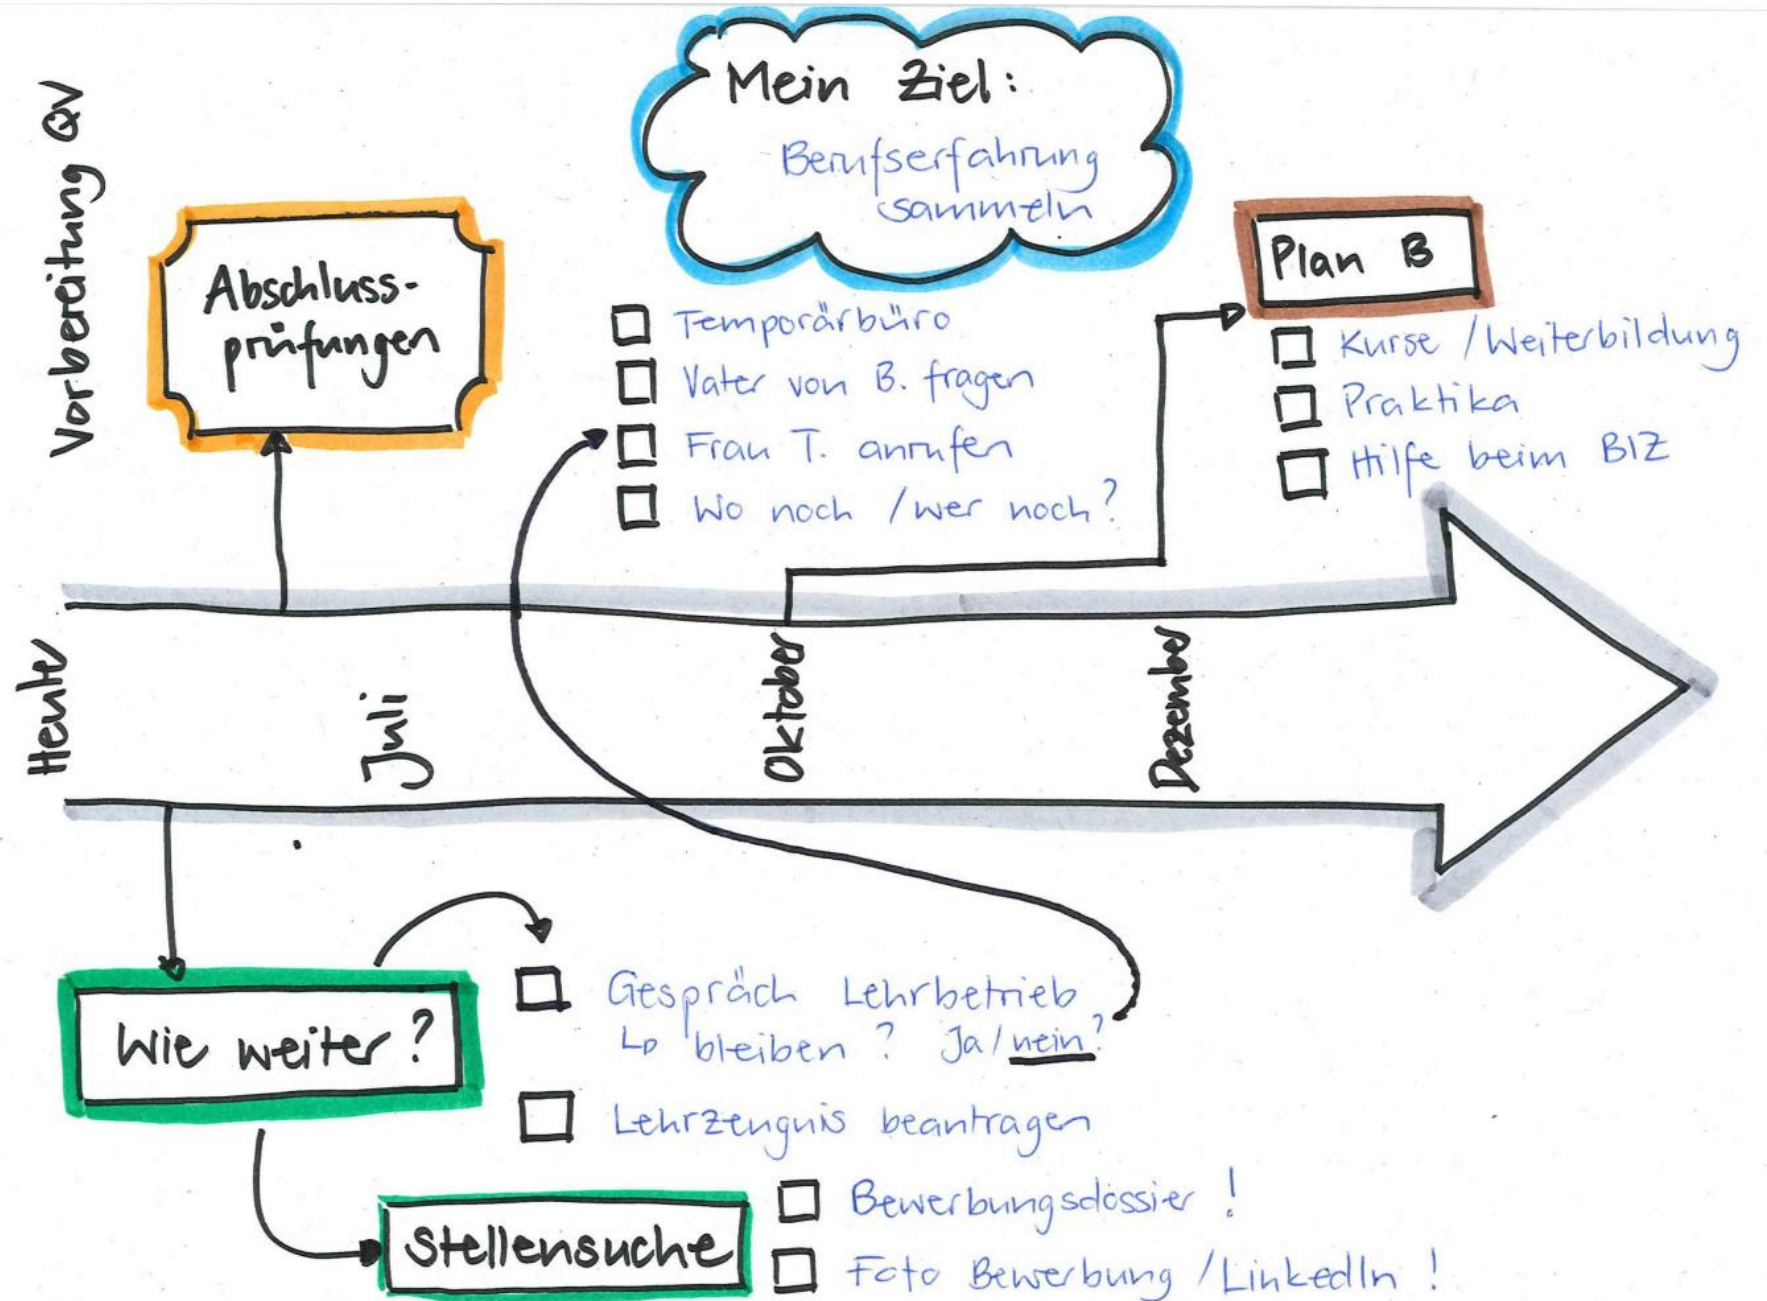 Vorbereitung QV
Abschluss-
prüfungen
Mein Ziel:
Berufserfahrung
sammeln
Temporärbüro
Vater von B. fragen
Frau T. anrufen
Wo noch / wer noch?
Plan B
Kurse / Weiterbildung
Praktika
Hilfe beim BIZ
Heute
Juli
Oktober
Dezember
Wie weiter?
Gespräch Lehrbetrieb
↳ bleiben? Ja/nein?
Lehrzeugnis beantragen
Stellensuche
Bewerbungsdossier!
Foto Bewerbung / LinkedIn!